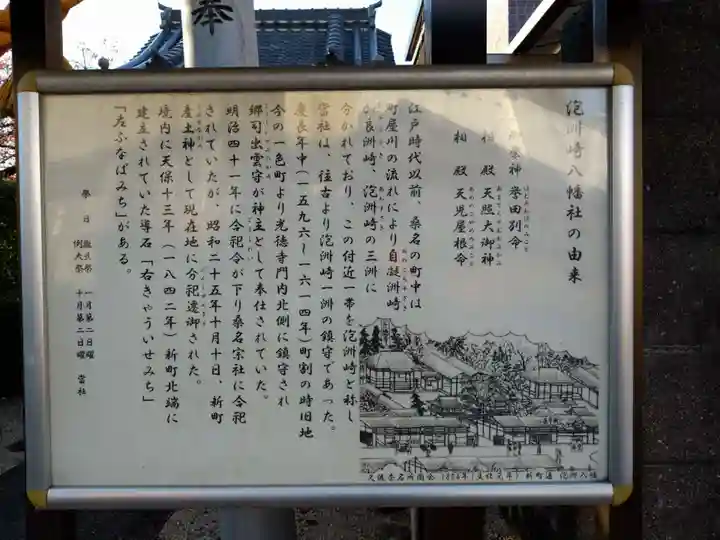 奉
泡洲崎八幡社の由来
祭神 誉田別命
相殿 天照大御神
相殿 天児屋根命
江戸時代以前、桑名の町中は
町屋川の流れにより自凝洲崎
加良洲崎、泡洲崎の三洲に
分かれており、この付近一帯を泡洲崎と称し
當社は、往古より泡洲崎一洲の鎮守であった。
慶長年中(一五九六~一六一四年)町割の時旧地
今の一色町より光徳寺門内北側に鎮守され
郷司出雲守が神主として奉仕されていた。
明治四十一年に合祀令が下り桑名宗社に合祀
されていたが、昭和二十五年十月十日、新町
産土神として現在地に分祀遷御された。
境内に天保十三年(一八四二年)新町北端に
建立されていた導石「右きやういせみち」
「左ふなばみち」がある。
祭日 歳旦祭 一月第二日曜
例大祭 十月第二日曜 當社
久波奈名所図会 新町通 泡洲八幡